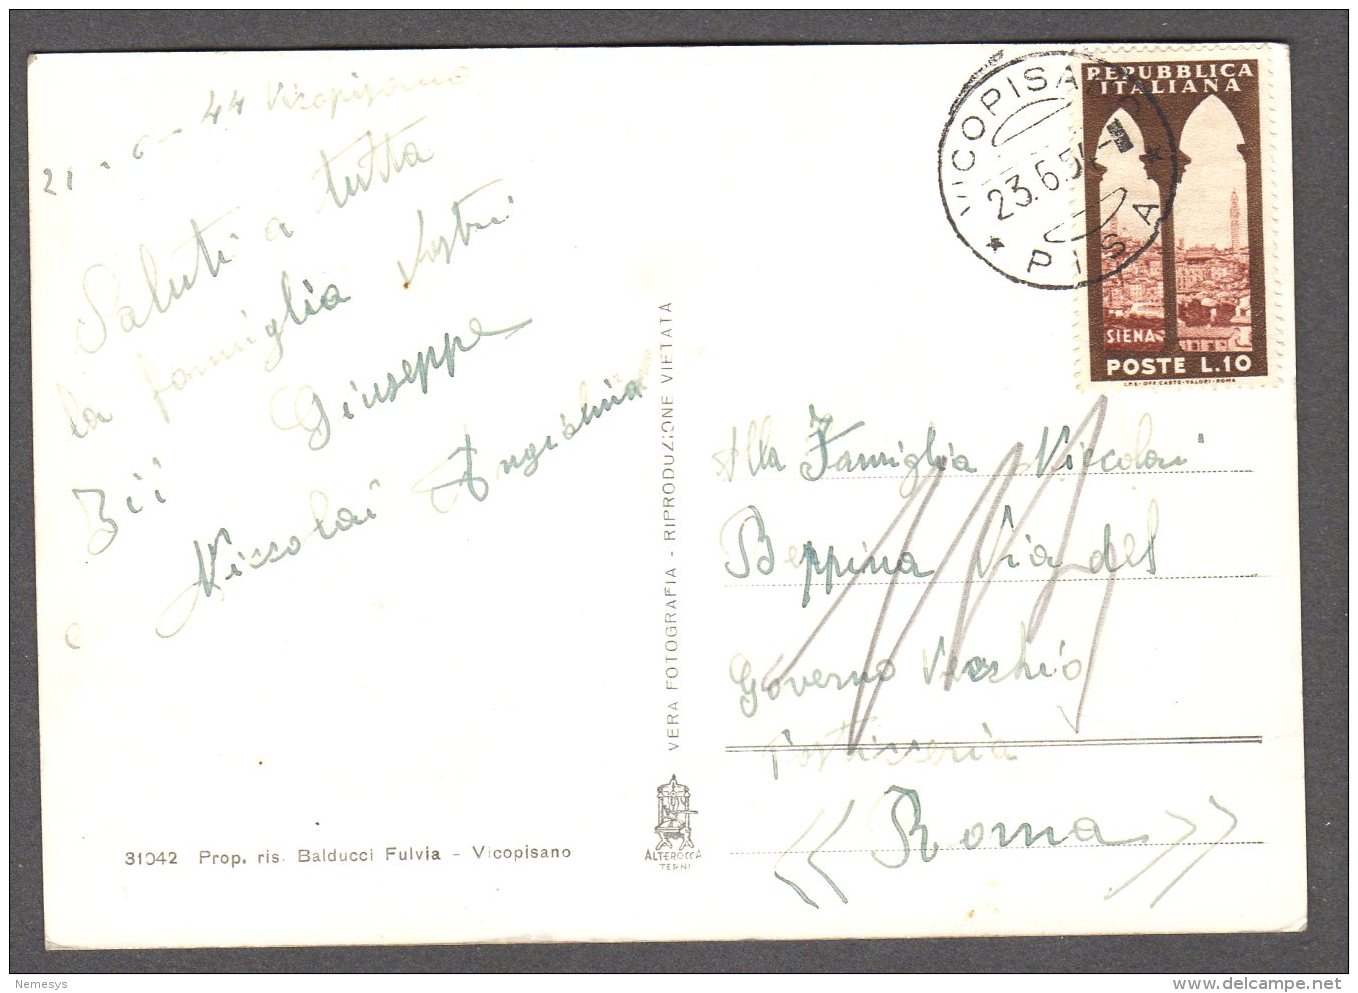 21 - 6 - 44 Vicopisano
Saluti a tutta
la famiglia Vostri
Zii Giuseppe
e Niccolai Angiolina
31042 Prop. ris. Balducci Fulvia - Vicopisano
VERA FOTOGRAFIA - RIPRODUZIONE VIETATA
ALTEROCCA
TERNI
VICOPISANO
23.6.5
PISA
REPUBBLICA
ITALIANA
SIENA
POSTE L.10
I.P.S. OFF. CARTE-VALORI-ROMA
Alla Famiglia Niccolai
Beppina Via del
Governo Vecchio
Pasticceria
<< Roma >>
Nemesys
delcampe.net